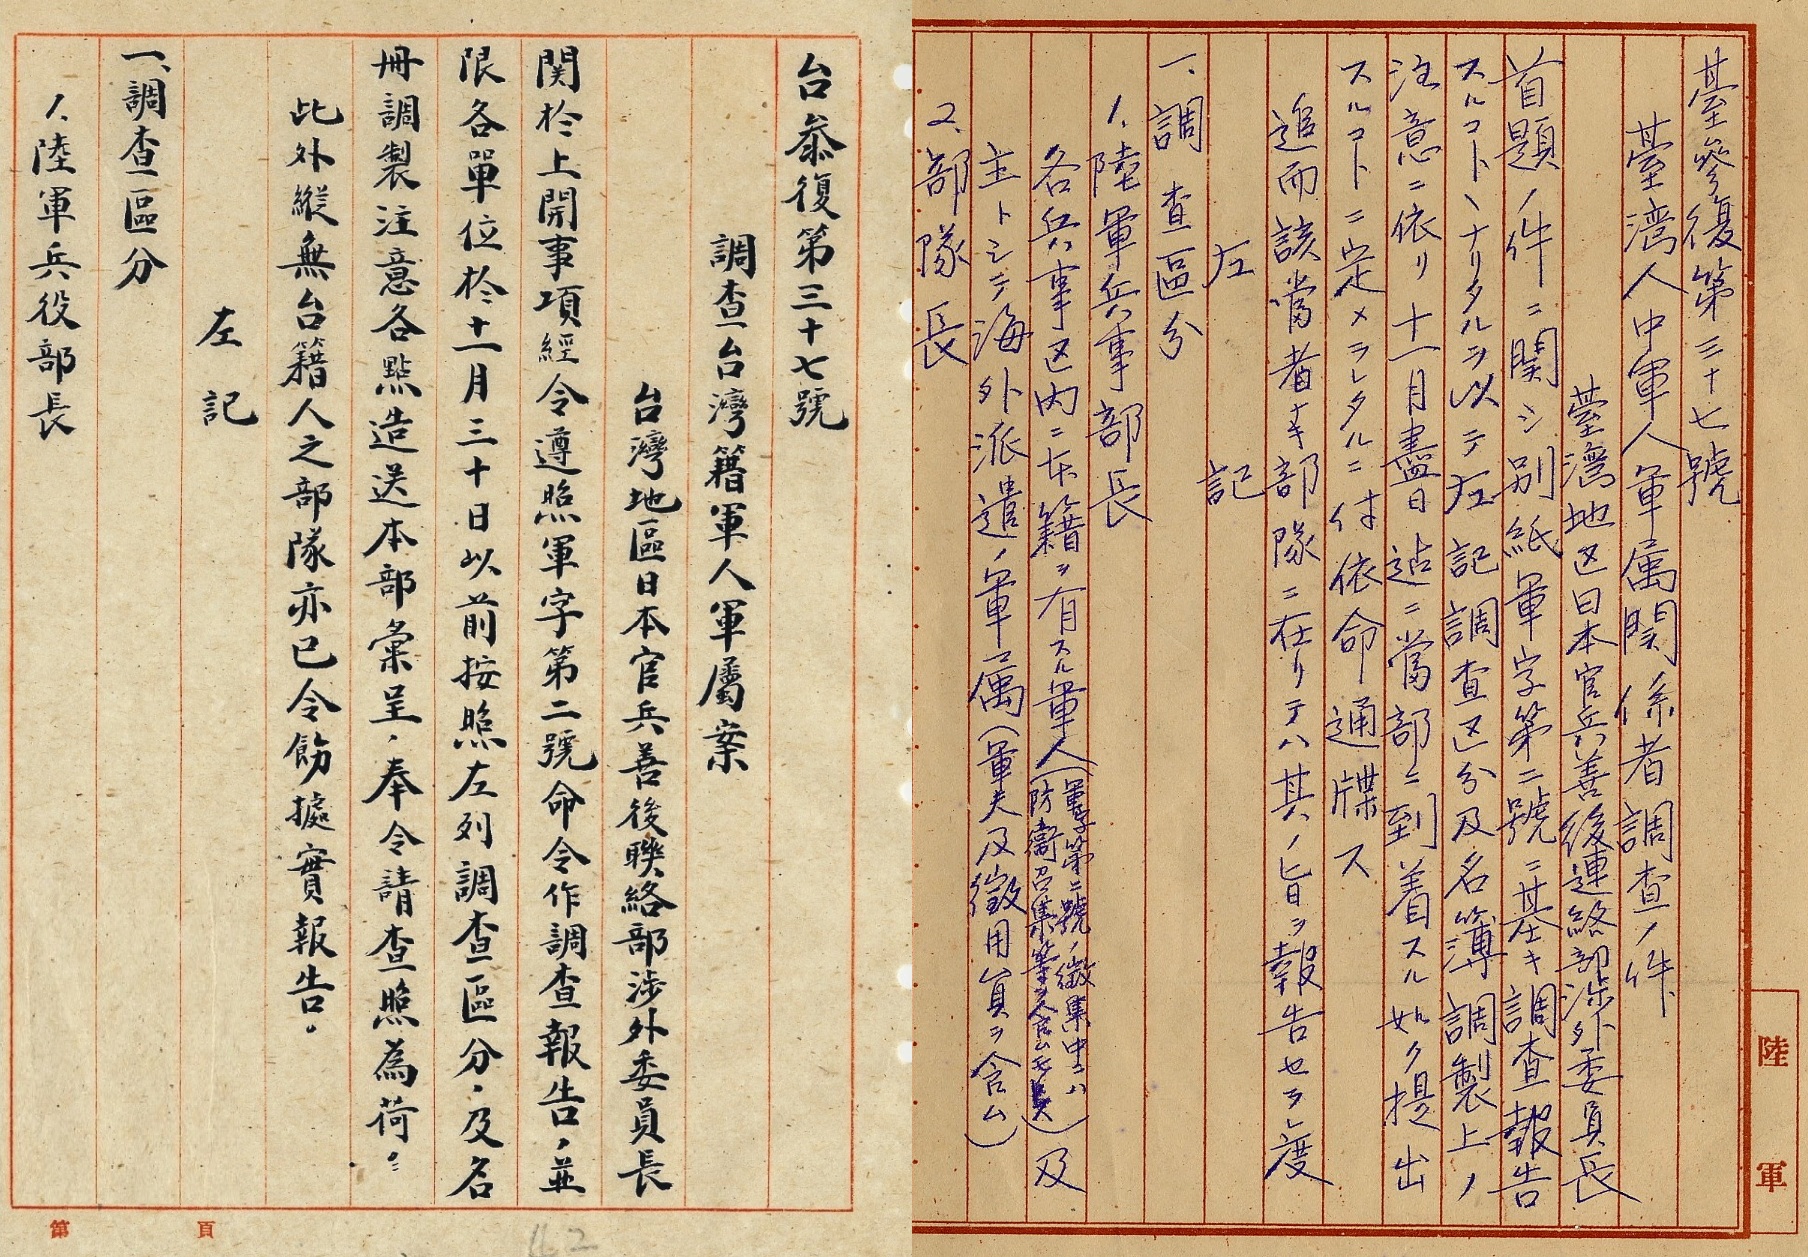 臺參復第三十七號
臺灣人中軍人軍属関係者調査ノ件
臺灣地区日本官兵善後連絡部渉外委員長
首題ノ件ニ関シ別紙軍字第二號ニ基キ調査報告
スルコトヽナリタルヲ以テ左記調査区分及名簿調製上ノ
注意ニ依リ十一月盡日迠ニ當部ニ到着スル如ク提出
スルコトニ定メラレタルニ付依命通牒ス
追而該當者ナキ部隊ニ在リテハ其ノ旨ヲ報告セラレ度
左記
一、調査區分
1、陸軍兵事部長
各兵事区内ニ本籍ヲ有スル軍人(軍字第二號ノ徴集中ニハ防衛召集等ヲ含ム)及
主トシテ海外派遣ノ軍属(軍夫及徴用員ヲ含ム)
2、部隊長
陸軍
台叅復第三十七號
調查台灣籍軍人軍屬案
台灣地區日本官兵善後聯絡部涉外委員長
関於上開事項經令遵照軍字第二號命令作調查報告,並
限各單位於十一月三十日以前按照左列調查區分,及名
冊調製注意各點造送本部彙呈,奉令請查照為荷。
此外縱無台籍人之部隊亦已令飭據實報告。
左記
一、調查區分
1、陸軍兵役部長
第 頁
162